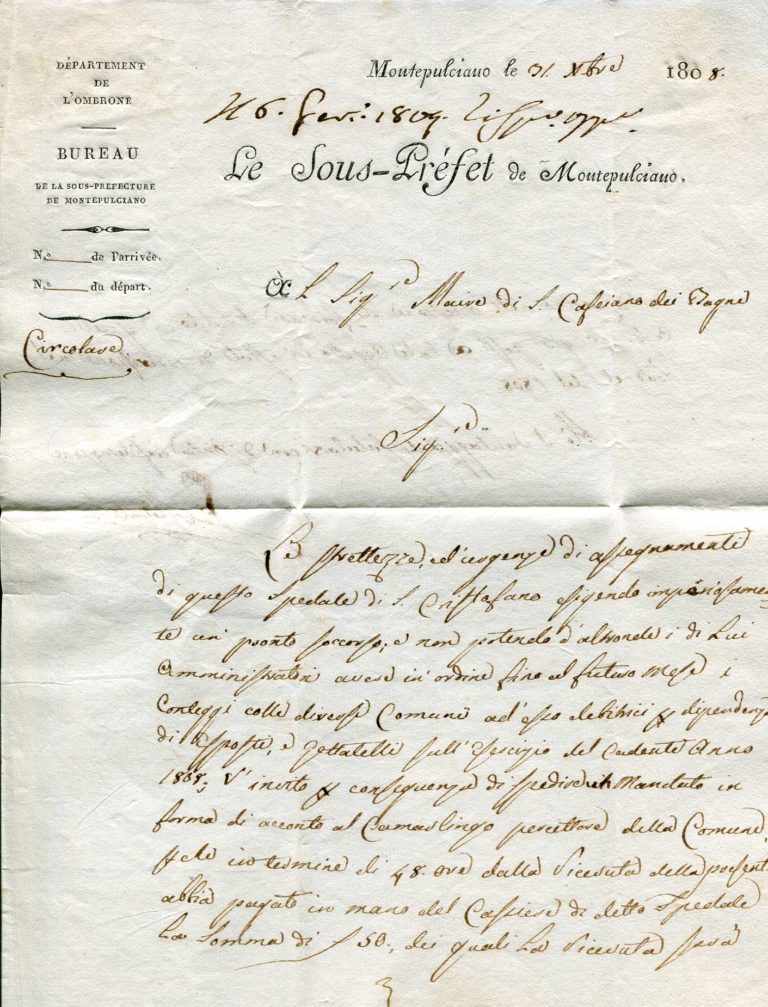 DÉPARTEMENT
DE
L'OMBRONE
BUREAU
DE LA SOUS-PREFECTURE
DE MONTEPULCIANO
N.o de l'arrivée.
N.o du départ.
Circolare
Montepulciano le 31 Xbre 1808.
6. Gen.: 1809.
Le Sous-Préfet de Montepulciano,
à l Sig.re Maire di S. Casciano dei Bagni
Sig.re
Le strettezze, ed urgenze di assegnamenti
di questo Spedale di S. Cristofano esigendo imperiosamen-
te un pronto soccorso, e non potendo d'altronde i di Lui
Amministratori avere in ordine fino al futuro Mese i
Conteggi colle diverse Comuni ad esso debitrici p dipendenza
di Esposti, e Gettatelli sull'Esercizio del Cadente Anno
1808; V'invito p conseguenza di spedire un Mandato in
forma di acconto al Camarlingo percettore della Comune,
che in termine di 48. ore dalla ricevuta della presente
abbia pagato in mano del Cassiere di detto Spedale
La Somma di f 50., dei quali La ricevuta sarà